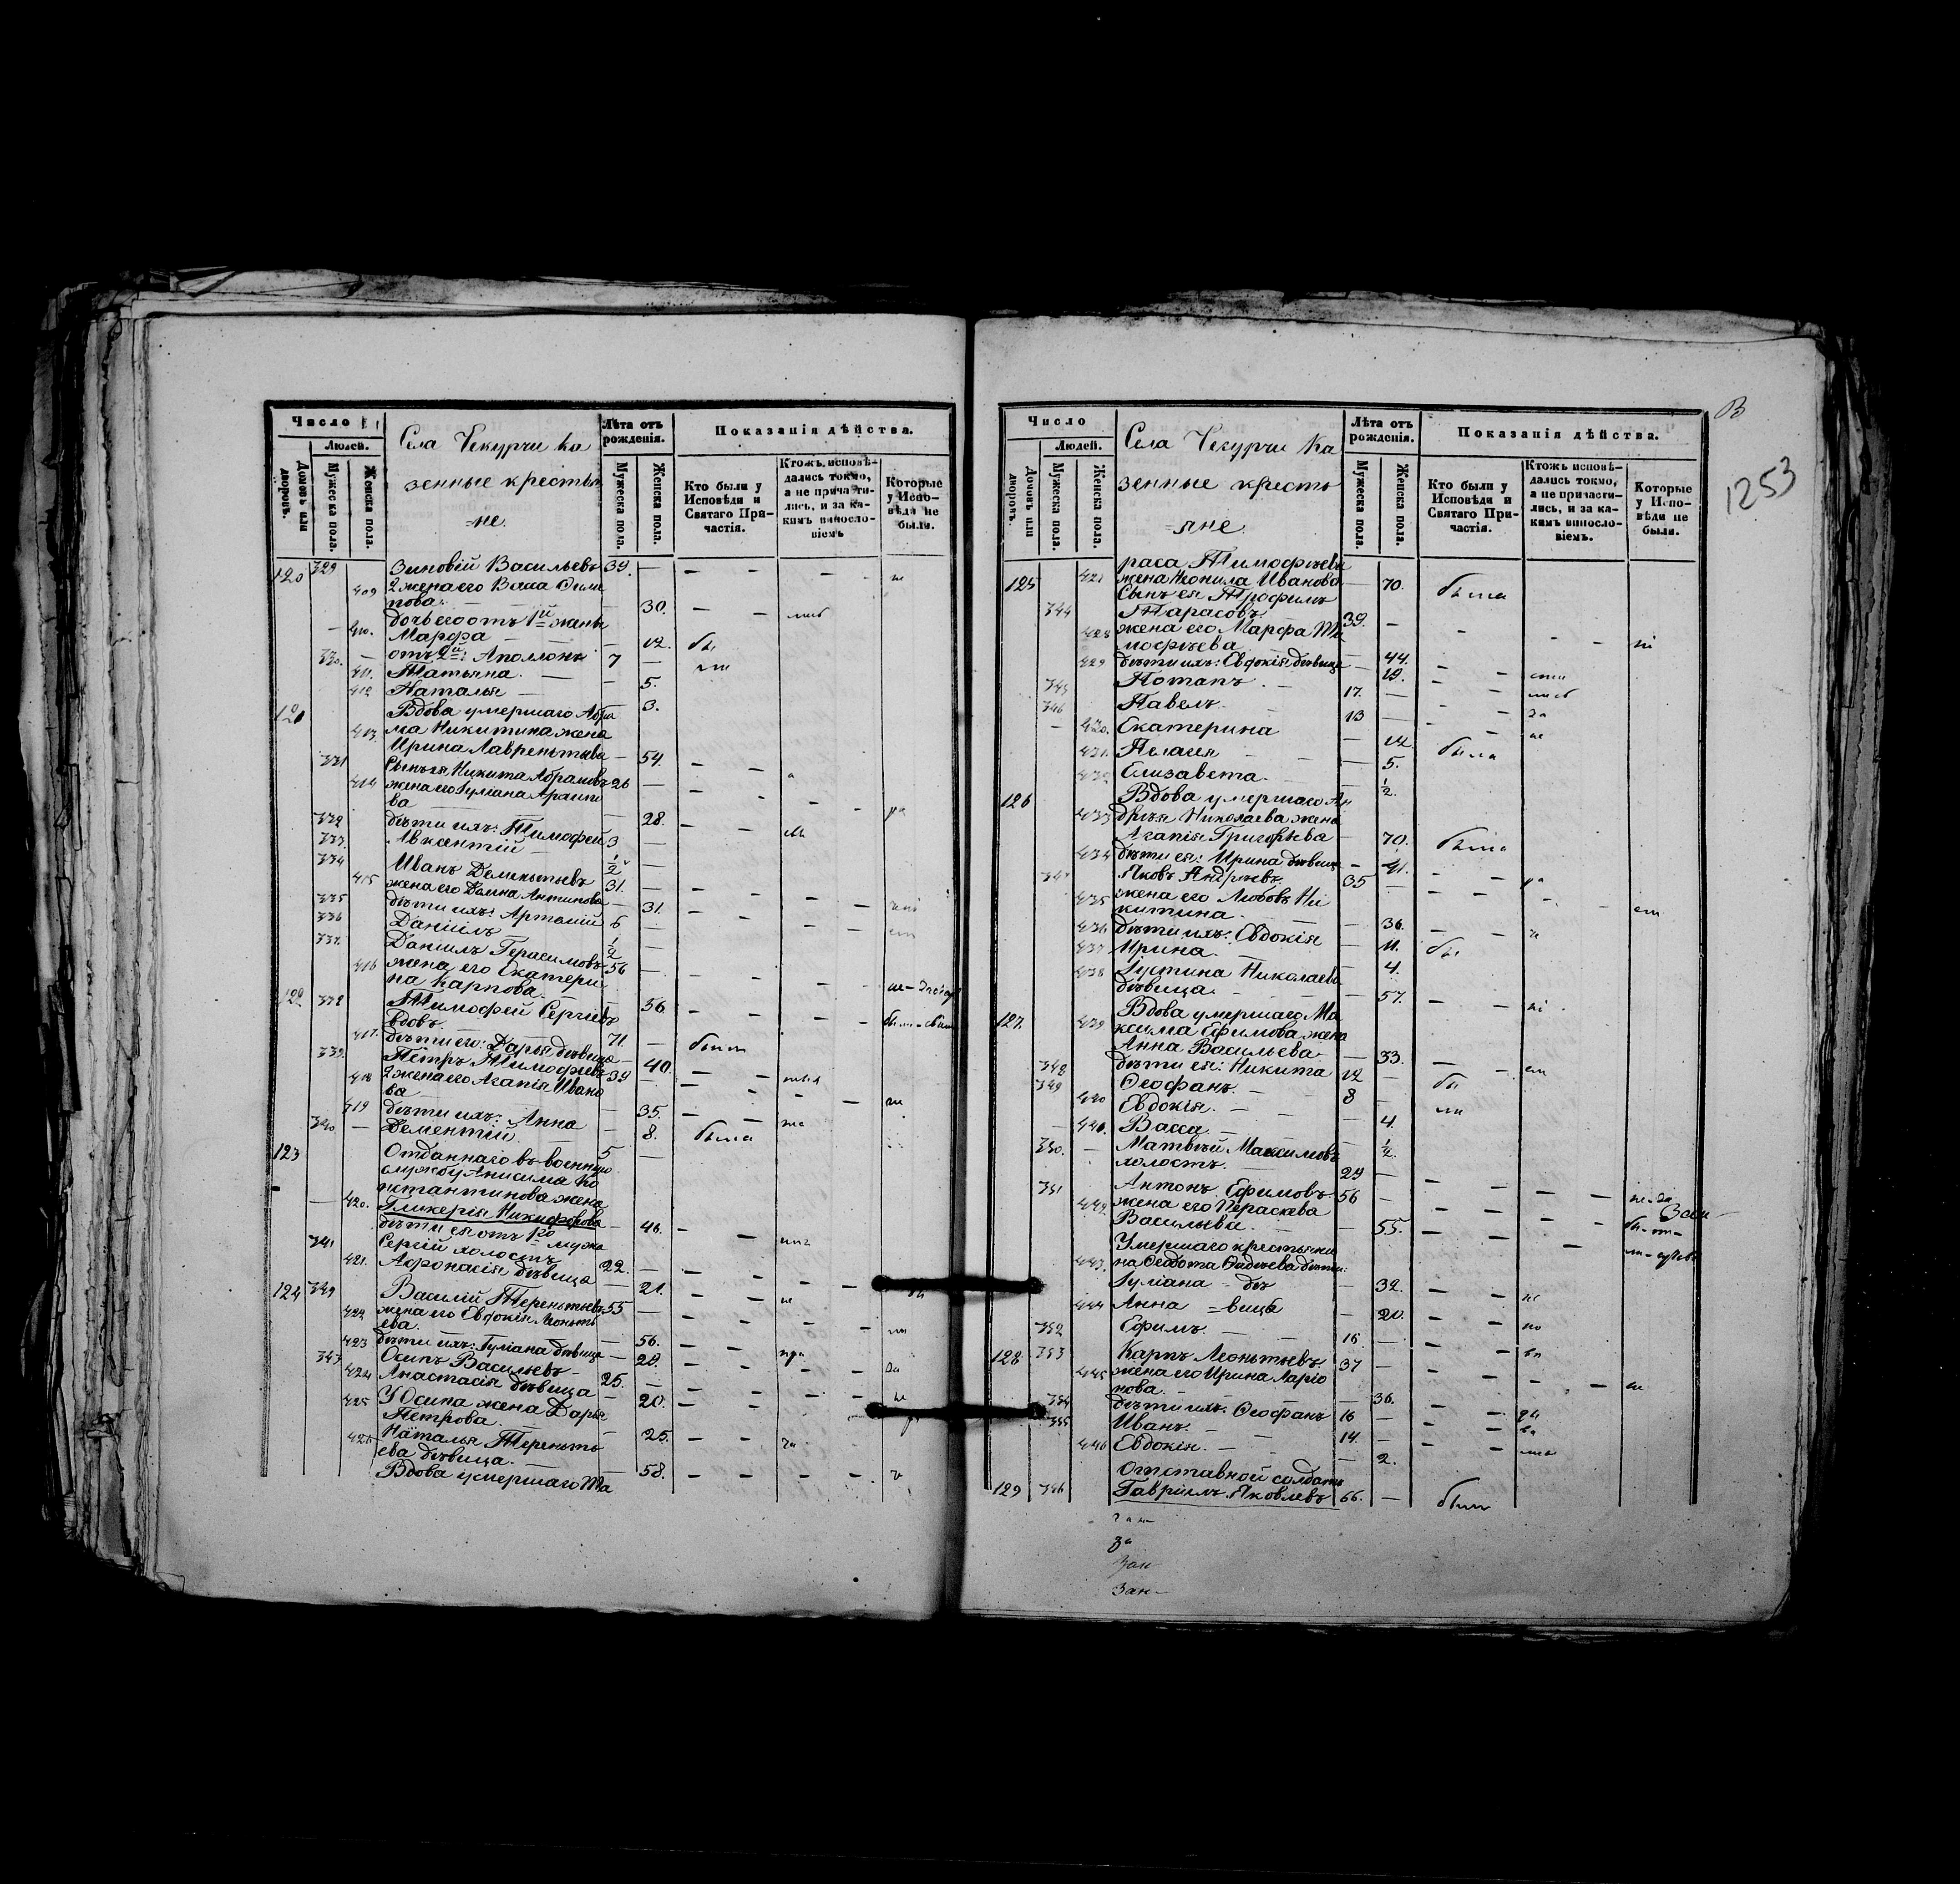 Число
Людей.
Домовъ или дворовъ.
Мужеска пола.
Женска пола.
Села Чекурчи ка
зенные крестья
=не.
Лѣта отъ рожденія.
Мужеска пола.
Женска пола.
Показанія дѣйства.
Кто были у Исповѣди и Святаго Причастія.
Ктожъ исповѣдались токмо, а не причастились, и за какимъ винословіемъ
Которые у Исповѣди не были.
120 329 Зиновій Васильевъ 39. —
409 2 жена его Васа
пова — 30.
дочь его отъ 1й жены
410. Марфа — 12. бы
330. отъ 2й: Аполлонъ 7 — ли
411. Татьяна. — 5.
412 Наталья — 3.
121 Вдова умершаго Абра
413. ма Никитина жена
Ирина Лаврентьева — 54.
331 Сынъ ея Никита Абрамовъ 26 —
414 жена его Іуліана
ва — 28.
332 дѣти ихъ: Тимофей 3 —
333. Авксентій ½ —
334 Иванъ Дементьевъ 31. —
415 жена его Антипова — 31.
335 дѣти ихъ: Артемій 6 —
336 Даніилъ ½ —
337. Даніилъ Герасимовъ 56 —
416 жена его Екатери
на Карпова. — 56
122 338 Тимофей Сергѣевъ
вдовъ. 71. —
417. дѣти его: Дарья дѣвица — 40. были
339. Петръ Тимофѣевъ 39 —
418 2 жена его Агапія Ивано
ва — 35.
419 дѣти ихъ: Анна — 8. была
340 — Дементій. 5 —
123 Отданнаго въ военную
службу Анисима Ко
нстантинова жена
420. Гликерія Никифорова — 46.
дѣти ея отъ 1го мужа
341 Сергій холостъ 22. —
421. Афонасія дѣвица — 21.
124 342 Василій Терентьевъ 55 —
422 жена его Евдокія Леонть
ева. — 56.
423 дѣти ихъ: Іуліана дѣвица — 28.
343 Осипъ Васильевъ 25. —
424 Анастасія дѣвица — 20.
425 У Осипа жена Дарья
Петрова. — 25.
426 Наталья Теренть
ева дѣвица. — 58.
Вдова умершаго Та
В
1253
Число
Людей.
Домовъ или дворовъ.
Мужеска пола.
Женска пола.
Села Чекурчи ка
зенные кресть
=яне.
Лѣта отъ рожденія.
Мужеска пола.
Женска пола.
Показанія дѣйства.
Кто были у Исповѣди и Святаго Причастія.
Ктожъ исповѣдались токмо, а не причастились, и за какимъ винословіемъ.
Которые у Исповѣди не были.
раса Тимофѣева
125 427 жена Неонила Иванова — 70. была
Сынъ ея Трофимъ
344 Тарасовъ 39. —
428 жена его Марфа Ти
мофѣева — 44.
429 дѣти ихъ: Евдокія дѣвица — 19.
345 Потапъ. 17. —
346 Павелъ. 13 —
430. Екатерина — 12. была
431. Пелагея — 5.
432 Елизавета. — ½.
126 Вдова умершаго Ан
433 дрея Николаева жена
Агапія Григорьева — 70. была
434 дѣти ея: Ирина дѣвица — 41.
347 Яковъ Андреевъ 35 —
435 жена его Любовь Ни
китина. — 36.
436 дѣти ихъ: Евдокія — 11. бы
437 Ирина. — 4.
438 Іустина Николаева
дѣвица. — 57.
127. Вдова умершаго Ма
439 ксима Ефимова жена
Анна Васильева — 33.
348 дѣти ея: Никита 12 — бы
349 Ѳеофанъ. 8 — ли
440 Евдокія. — 4.
441. Васса — ½.
350. Матвѣй Максимовъ
холостъ. 29 —
351 Антонъ Ефимовъ 56 —
442 жена его Пераскева
Васильева. — 55.
Умершаго крестьяни
443. на Ѳедота Фадеева дѣти:
Іуліана - дѣ — 32.
444 Анна = вицы — 20.
352 Ефимъ. 16 —
128 353 Карпъ Леонтьевъ. 37 —
445 жена его Ирина Ларіо
нова. — 36.
354 дѣти ихъ: Ѳеофанъ 16 —
355 Иванъ. 14. —
446 Евдокія. — 2.
Отставной солдатъ
129 356 Гавріилъ Яковлевъ 66. — были